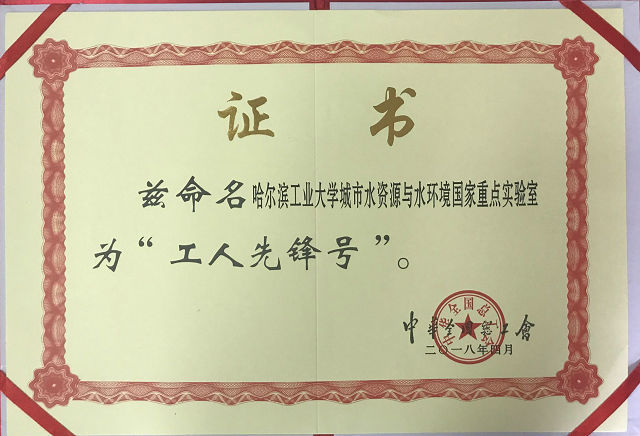 证书
兹命名哈尔滨工业大学城市水资源与水环境国家重点实验室
为“工人先锋号”。
中华全国总工會
二〇一八年四月